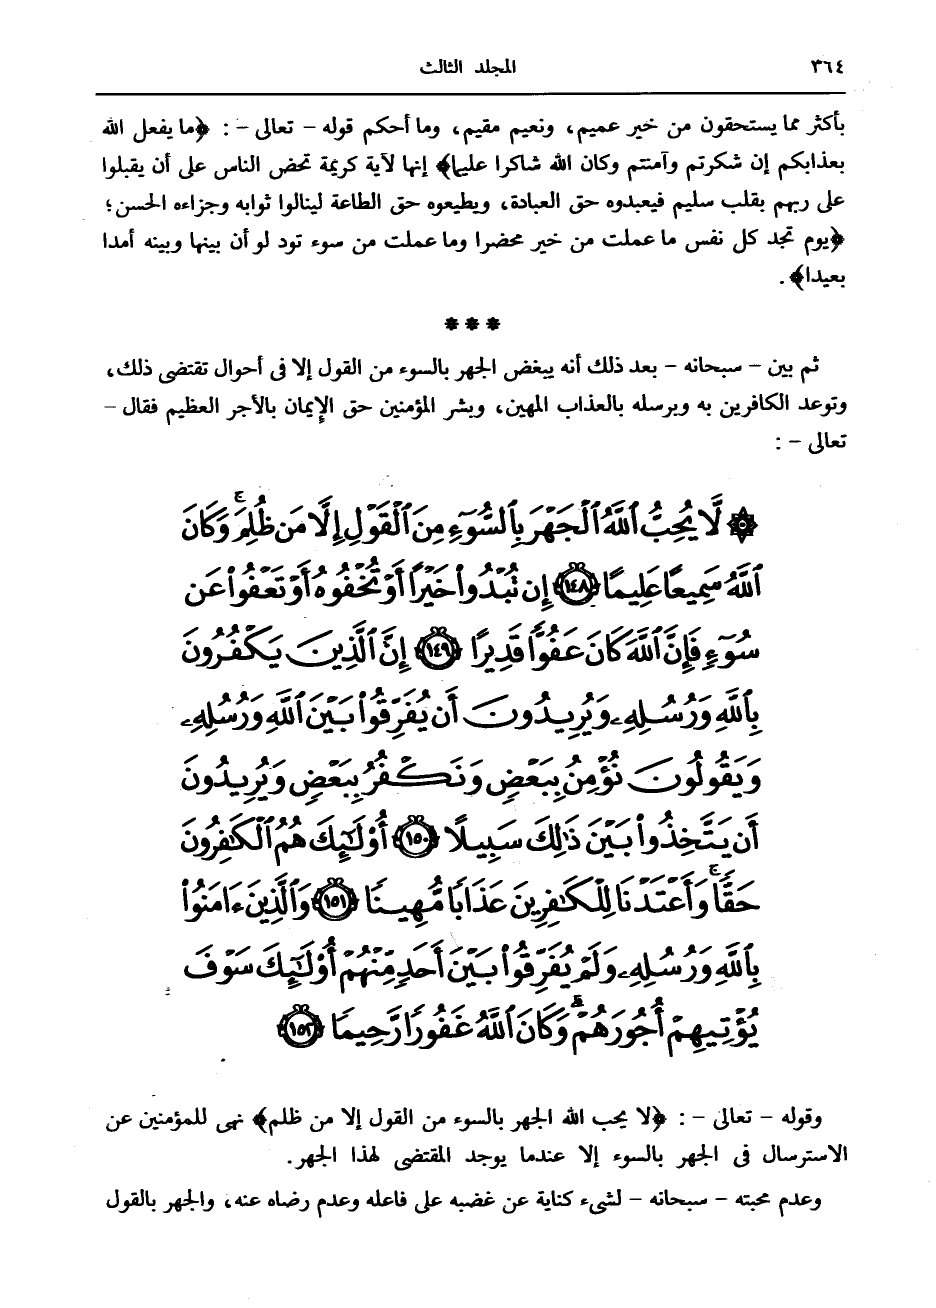 ٣٦٤ المجلد الثالث
بأكثر مما يستحقون من خير عميم، ونعيم مقيم، وما أحكم قوله - تعالى - : ﴿ما يفعل الله
بعذابكم إن شكرتم وآمنتم وكان الله شاكرا عليما﴾ إنها لآية كريمة تحض الناس على أن يقبلوا
على ربهم بقلب سليم فيعبدوه حق العبادة، ويطيعوه حق الطاعة لينالوا ثوابه وجزاءه الحسن؛
﴿يوم تجد كل نفس ما عملت من خير محضرا وما عملت من سوء تود لو أن بينها وبينه أمدا
بعيدا﴾ .
* * *
ثم بين - سبحانه - بعد ذلك أنه يبغض الجهر بالسوء من القول إلا فى أحوال تقتضى ذلك،
وتوعد الكافرين به وبرسله بالعذاب المهين، وبشر المؤمنين حق الإيمان بالأجر العظيم فقال -
تعالى - :
۞ لَّا يُحِبُّ ٱللَّهُ ٱلْجَهْرَ بِٱلسُّوٓءِ مِنَ ٱلْقَوْلِ إِلَّا مَن ظُلِمَ ۚ وَكَانَ
ٱللَّهُ سَمِيعًا عَلِيمًا ١٤٨ إِن تُبْدُوا۟ خَيْرًا أَوْ تُخْفُوهُ أَوْ تَعْفُوا۟ عَن
سُوٓءٍ فَإِنَّ ٱللَّهَ كَانَ عَفُوًّا قَدِيرًا ١٤٩ إِنَّ ٱلَّذِينَ يَكْفُرُونَ
بِٱللَّهِ وَرُسُلِهِۦ وَيُرِيدُونَ أَن يُفَرِّقُوا۟ بَيْنَ ٱللَّهِ وَرُسُلِهِۦ
وَيَقُولُونَ نُؤْمِنُ بِبَعْضٍ وَنَكْفُرُ بِبَعْضٍ وَيُرِيدُونَ
أَن يَتَّخِذُوا۟ بَيْنَ ذَٰلِكَ سَبِيلًا ١٥٠ أُو۟لَٰٓئِكَ هُمُ ٱلْكَٰفِرُونَ
حَقًّا ۚ وَأَعْتَدْنَا لِلْكَٰفِرِينَ عَذَابًا مُّهِينًا ١٥١ وَٱلَّذِينَ ءَامَنُوا۟
بِٱللَّهِ وَرُسُلِهِۦ وَلَمْ يُفَرِّقُوا۟ بَيْنَ أَحَدٍ مِّنْهُمْ أُو۟لَٰٓئِكَ سَوْفَ
يُؤْتِيهِمْ أُجُورَهُمْ ۗ وَكَانَ ٱللَّهُ غَفُورًا رَّحِيمًا ١٥٢
وقوله - تعالى - : ﴿لا يحب الله الجهر بالسوء من القول إلا من ظلم﴾ نهى للمؤمنين عن
الاسترسال فى الجهر بالسوء إلا عندما يوجد المقتضى لهذا الجهر.
وعدم محبته - سبحانه - لشىء كناية عن غضبه على فاعله وعدم رضاه عنه، والجهر بالقول